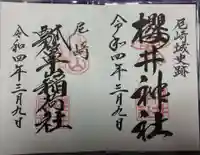 尼崎城史跡
櫻井神社
令和四年三月九日
尼崎
瓢箪稲荷社
令和四年三月九日